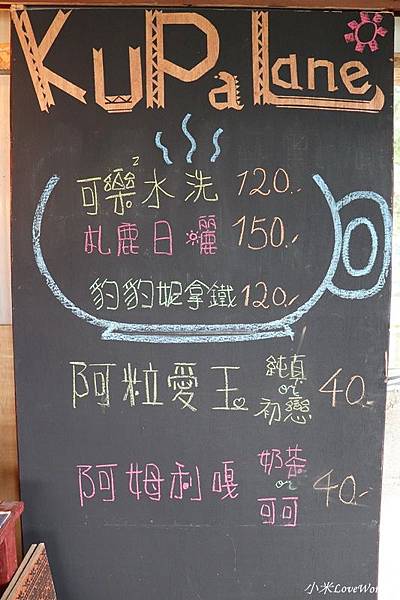 KuPa Lane
可樂² 水洗 120.-
札鹿日曬 150.-
豹豹妮拿鐵 120.-
阿粒愛玉 純真 or 初戀 40.-
阿姆利嘎 奶茶 or 可可 40.-
小米LoveWor